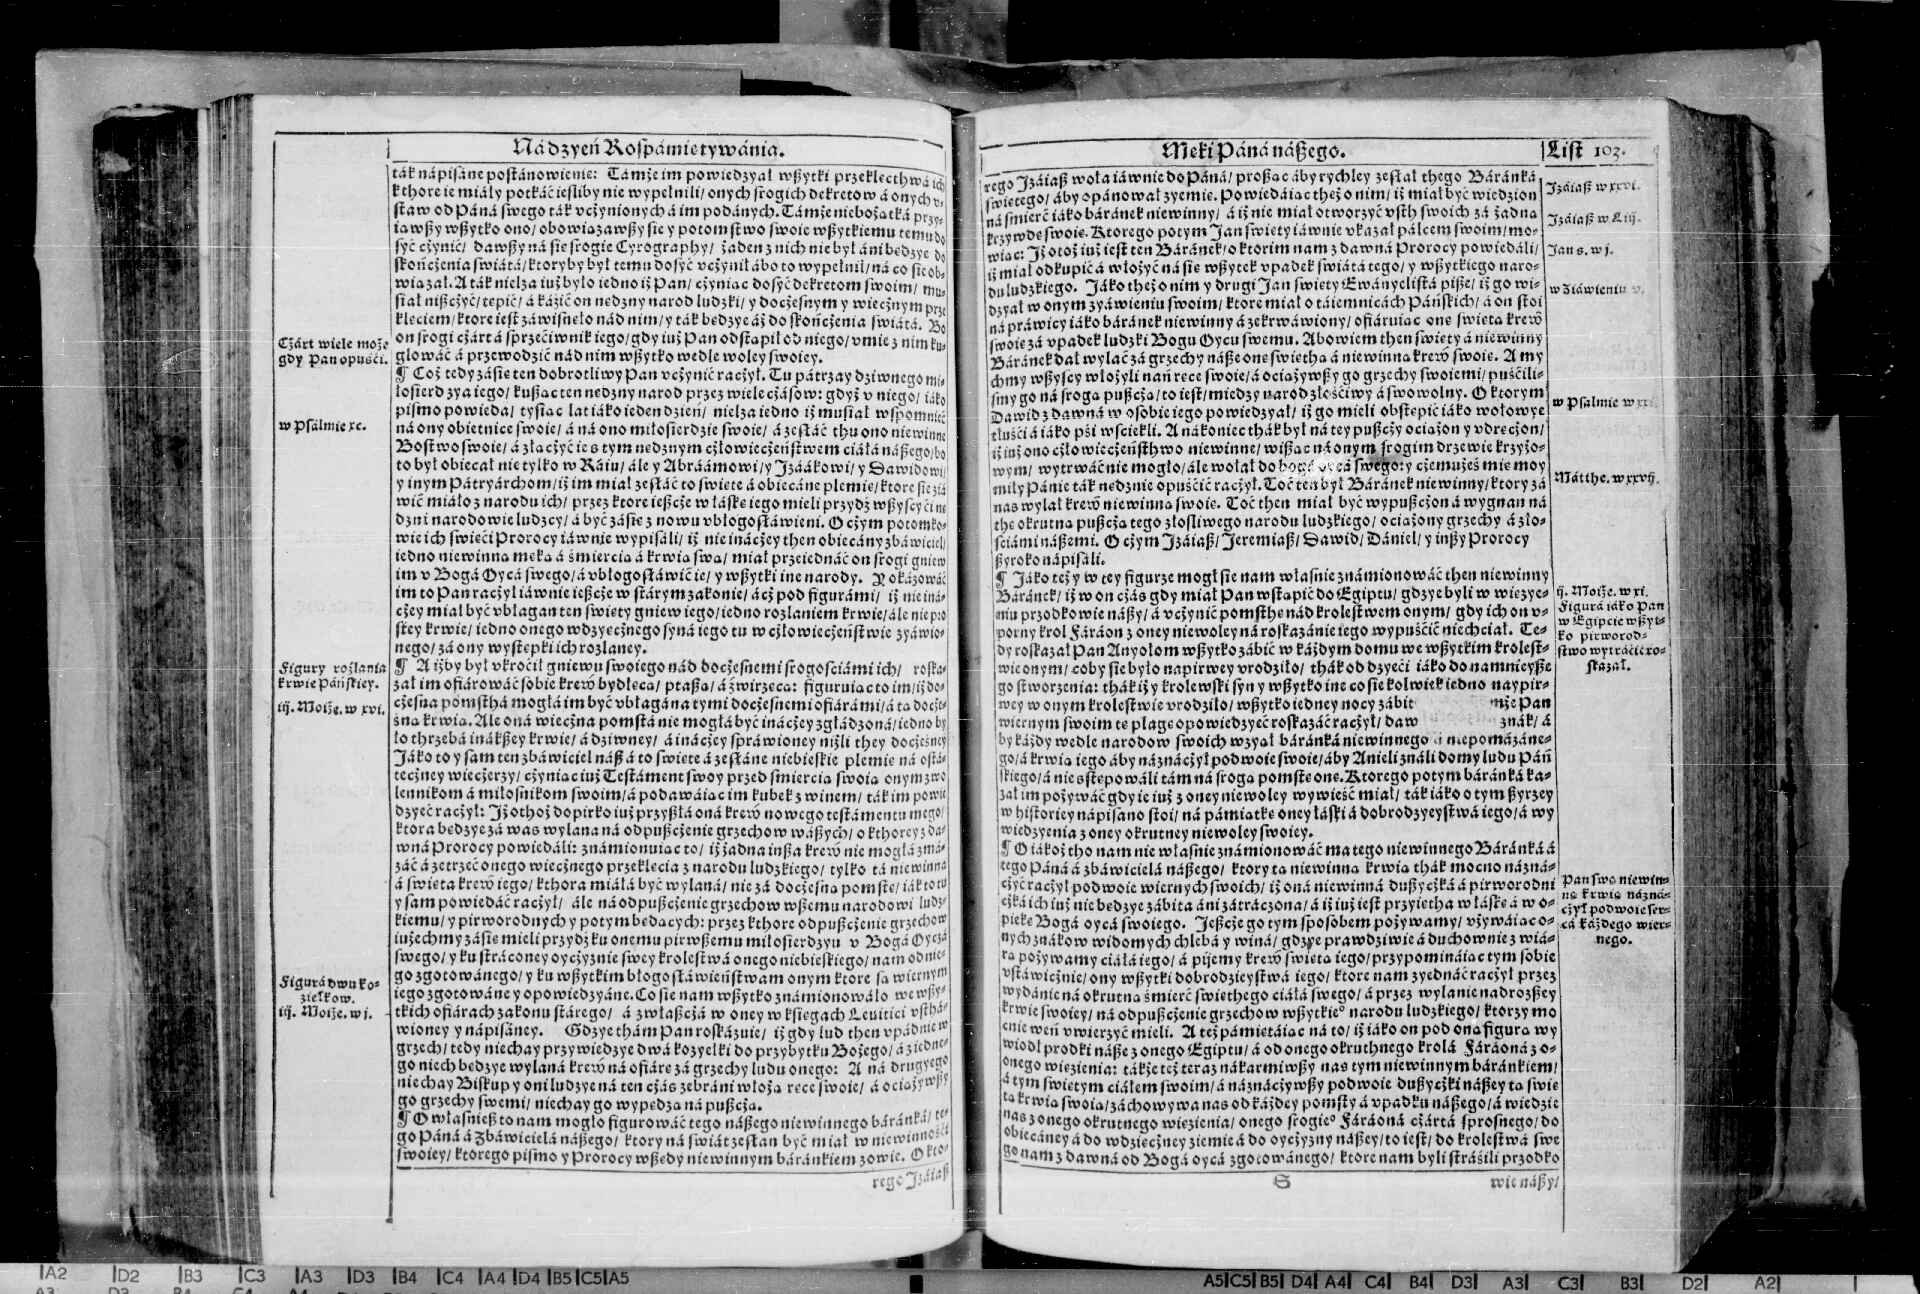 Ná dzyeń Rospámiętywánia.
ták nápisáne postánowienie: Támże im powiedzyał wßytki przeklecthwá ich
kthore ie miáły potkáć iesliby nie wypełnili/ onych srogich dekretow á onych v-
staw od Páná swego ták vczynionych á im podánych. Támże niebożatká przy-
iawßy wßytko ono/ obowiazawßy sie y potomstwo swoie wßytkiemu temu do
syć cżynić/ dawßy ná sie srogie Cyrography/ żaden z nich nie był áni bedzye do
skończenia swiátá/ ktoryby był temu dosyć vczynił ábo to wypełnił/ ná co sie ob-
wiazał. A ták nielza iuż było iedno iż Pan/ cżyniac dosyć dekretom swoim/ mu-
siał nißcżyć/ tepić/ á káźić on nedzny narod ludzki/ y docżesnym y wiecżnym prze
kleciem/ ktore iest záwisneło nád nim/ y ták bedzye áż do skońcżenia swiátá. Bo
on srogi cżárt á sprzećiwnik iego/ gdy iuż Pan odstąpił od niego/ vmie z nim ku-
glowáć á przewodzić nád nim wßytko wedle woley swoiey.
¶ Coż tedy zásie ten dobrotliwy Pan vcżynić racżył. Tu pátrzay dziwnego mi-
łosierdzya iego/ kußac ten nedzny narod przez wiele cżásow: gdyż v niego/ iáko
pismo powieda/ tysiac lat iáko ieden dzień/ nielza iedno iż musiał wspomnieć
ná ony obietnice swoie/ á ná ono miłosierdzie swoie/ á zesłáć thu ono niewinne
Bostwo swoie/ á złacżyć ie s tym nedznym cżłowiecżeństwem ciáłá nášego/ bo
to był obiecał nie tylko w Ráiu/ ále y Abráámowi/ y Jzáákowi/ y Dawidowi/
y inym Pátryárchom/ iż im miał zesłáć to swiete á obiecáne plemie/ ktore sie ziá
wić miáło z narodu ich/ przez ktore ießcże w łáske iego mieli przydz wßyscy ći ne
dzni narodowie ludzcy/ á być zásie z nowu vbłogosłáwieni. O cżym potomko-
wie ich swieći Prorocy iáwnie wypisáli/ iż nie inácżey then obiecány zbáwiciel/
iedno niewinna meka á śmiercia á krwia swa/ miał przeiednáć on srogi gniew
im v Bogá Oycá swego/ á vbłogosłáwić ie/ y wßytki ine narody. Y okázowáć
im to Pan racżył iáwnie ießcże w stárym zakonie/ ácż pod figurámi/ iż nie iná-
cżey miał być vbłagan ten swiety gniew iego/ iedno rozlaniem krwie/ ále nie pro
stey krwie/ iedno onego wdzyecżnego syná iego tu w cżłowiecżeństwie zyáwio-
nego/ zá ony wystepki ich rozlaney.
¶ A iżby był vkroćił gniewu swoiego nád docżesnemi srogosciámi ich/ roska-
zał im ofiárowáć sobie krew bydleca/ ptaßa/ á źwirzeca: figuruiac to im/ iż do-
cżesna pomsthá mogłá im być vbłagána tymi docżesnemi ofiárámi/ á ta docże-
sna krwia. Ale oná wiecżna pomstá nie mogłá być inácżey zgłádzoná/ iedno by
ło thrzebá inákßey krwie/ á dziwney/ á inácżey spráwioney niżli they docżesney
Jáko to y sam ten zbáwiciel náß á to swiete á zesłáne niebieskie plemie ná ostá-
tecżney wiecżerzy/ cżyniac iuż Testáment swoy przed śmiercia swoia onym zwo
lennikom á miłosnikom swoim/ á podawáiac im kubek z winem/ ták im powie
dzyeć racżył: Jż othoż dopirko iuż przyßłá oná krew nowego testámentu mego/
ktora bedzye zá was wylana ná odpußcżenie grzechow wáßych/ o kthorey z da-
wná Prorocy powiedáli: známionuiac to/ iż żadna inßa krew nie mogłá zmá-
záć á zetrzeć onego wiecżnego przeklecia z narodu ludzkiego/ tylko tá niewinna
á swieta krew iego/ kthora miáłá być wylaná/ nie zá docżesna pomste/ iák to tu
y sam powiedáć racżył/ ále ná odpußcżenie grzechow wßemu narodowi ludz-
kiemu/ y pirworodnych y potym bedacych: przez kthore odpußcżenie grzechow
iużechmy zásie mieli przydz ku onemu pirwßemu miłosierdzyu v Bogá Oycá
swego/ y ku stráconey oycżyznie swey krolestwá onego niebieskiego/ nam od nie-
go zgotowánego/ y ku wßytkim błogosłáwieństwam onym ktore sa wiernym
iego zgotowáne y opowiedzyáne. Co sie nam wßytko známionowáło we wßy-
tkich ofiárach zakonu stárego/ á zwłaßcżá w oney w ksiegach Leuitici vsthá-
wioney y nápisáney. Gdzye thám Pan roskázuie/ iż gdy lud then vpádnie w
grzech/ tedy niechay przywiedzye dwá kozyełki do przybytku Bożego/ á z iedne-
go niech bedzye wylaná krew ná ofiáre zá grzechy ludu onego: A ná drugyego
niechay Biskup y oni ludzye ná ten cżás zebráni włoża rece swoie/ á ociażywßy
go grzechy swemi/ niechay go wypedza ná pußcża.
¶ O własnieß to nam mogło figurowáć tego náßego niewinnego báránká/ te-
go Páná á Zbáwicielá náßego/ ktory ná swiát zesłan być miał w niewinnośći
swoiey/ ktorego pismo y Prorocy wßedy niewinnym báránkiem zowie. O kto-
rego Jzáiaß
Cżárt wiele może
gdy Pan opuśći.
w Psálmie xc.
Figury rozlania
krwie Páńskiey.
iij. Moiże. w xvi.
Figurá dwu ko-
ziełkow.
iij. Moiże. w j.
Meki Páná náßego.
List 103.
rego Jzáiaß woła iáwnie do Páná/ proßac áby rychley zesłał thego Báránká
swietego/ áby opánował zyemie. Powiedáiac też o nim/ iż miał być wiedzion
ná śmierć iáko báránek niewinny/ á iż nie miał otworzyć vsth swoich zá żadna
krzywde swoie. Ktorego potym Jan swiety iáwnie vkazał pálcem swoim/ mo-
wiac: Jż otoż iuż iest ten Báránek/ o ktorim nam z dawná Prorocy powiedáli/
iż miał odkupić á włożyć ná sie wßytek vpadek swiátá tego/ y wßytkiego naro-
du ludzkiego. Jáko też o nim y drugi Jan swiety Ewányelistá piße/ iż go wi-
dzyał w onym zyáwieniu swoim/ ktore miał o táiemnicách Páńskich/ á on stoi
ná práwicy iáko báránek niewinny á zekrwáwiony/ ofiáruiac one swieta krew
swoie zá vpadek ludzki Bogu Oycu swemu. Abowiem then swiety á niewinny
Báránek dał wylać zá grzechy náße one swietha á niewinna krew swoie. A my
chmy wßyscy włożyli nań rece swoie/ á ociażywßy go grzechy swoiemi/ puścili-
smy go ná sroga pußcża/ to iest/ miedzy narod złośćiwy á swowolny. O ktorym
Dawid z dawná w osobie iego powiedzyał/ iż go mieli obstepić iáko wołowye
tłuśći á iáko pśi wściekli. A nákoniec thák był ná tey pußcży ociażon y vdrecżon/
iż iuż ono cżłowiecżeństhwo niewinne/ wißac ná onym srogim drzewie krzyżo-
wym/ wytrwáć nie mogło/ ále wołał do bogá oycá swego: y cżemużeś mie moy
miły Pánie ták nedznie opuśćić racżył. Toć ten był Báránek niewinny/ ktory zá
nas wylał krew niewinna swoie. Toć then miał być wypußcżon á wygnan ná
the okrutna pußcża tego złosliwego narodu ludzkiego/ ociażony grzechy á zło-
śćiámi náßemi. O cżym Jzáiaß/ Jeremiaß/ Dawid/ Dániel/ y inßy Prorocy
ßyroko nápisáli.
¶ Jáko też y w tey figurze mogł sie nam własnie známionowáć then niewinny
Báránek/ iż w on cżás gdy miał Pan wstąpić do Egiptu/ gdzye byli w wiezye-
niu przodkowie náßy/ á vcżynić pomsthe nád krolestwem onym/ gdy ich on v-
porny krol Fáráon z oney niewoley ná roskazánie iego wypuśćić niechciał. Te-
dy roskazał Pan Anyołom wßytko zábić w káżdym domu we wßytkim krolest-
wie onym/ coby sie było napirwey vrodziło/ thák od dzyeći iáko do namnieyße
go stworzenia: thák iż y krolewski syn y wßytko ine co sie kolwiek iedno naypir-
wey w onym krolestwie vrodziło/ wßytko iedney nocy zábit mże Pan
wiernym swoim te plage opowiedzyeć roskazáć racżył/ daw znák/ á
by káżdy wedle narodow swoich wzyał báránká niewinnego á niepomázáne-
go/ á krwia iego áby náznácżył podwoie swoie/ áby Anieli ználi domy ludu Páń
skiego/ á nie wstepowáli tám ná sroga pomste one. Ktorego potym báránká ka-
zał im pożywáć gdy ie iuż z oney niewoley wywieść miał/ ták iáko o tym ßyrzey
w historiey nápisano stoi/ ná pámiatke oney łáski á dobrodzyeystwá iego/ á wy
wiedzyenia z oney okrutney niewoley swoiey.
¶ O iákoż tho nam nie własnie známionowáć ma tego niewinnego Báránká á
tego Páná á zbáwicielá náßego/ ktory ta niewinna krwia thák mocno názná-
cżyć racżył podwoie wiernych swoich/ iż oná niewinna dußycżká á pirworodni
cżká ich iuż nie bedzye zábita áni zátráczona/ á iż iuż iest przyietha w łáske á w o-
pieke Bogá oycá swoiego. Jeßcże go tym sposobem pożywamy/ vżywáiac o-
nych znákow widomych chlebá y winá/ gdzye prawdziwie á duchownie z wiá-
ra pożywamy ciáłá iego/ á pijemy krew swieta iego/ przypomináiac tym sobie
vstáwicżnie/ ony wßytki dobrodzieystwá iego/ ktore nam zyednáć racżył przez
wydánie ná okrutna śmierć swiethego ciáłá swego/ á przez wylanie nadrozßey
krwie swoiey/ ná odpußcżenie grzechow wßytkie⁰ narodu ludzkiego/ ktorzy mo
cnie weń vwierzyć mieli. A też pámietáiac ná to/ iż iáko on pod ona figura wy
wiodł prodki náße z onego Egiptu/ á od onego okruthnego krolá Fáráoná z o-
onego wiezienia: tákże też teraz nákarmiwßy nas tym niewinnym báránkiem/
á tym swietym ciáłem swoim/ á náznácżywßy podwoie dußycżki náßey ta swie
ta krwia swoia/ záchowywa nas od káżdey pomsty á vpadku náßego/ á wiedzie
nas z onego okrutnego wiezienia/ onego srogie⁰ Fáráoná cżártá sprosnego/ do
obiecáney á do wdziecżney ziemie á do oycżyzny náßey/ to iest/ do krolestwá swe
go nam z dawná od Bogá oycá zgotowánego/ ktore nam byli stráćili przodko
S
wie náßy/
Jzáiaß w xxvi.
Jzáiaß w Liij.
Jan s. w j.
w Ziáwieniu v.
w Psálmie w xxi.
Mátthe. w xxvij.
ij. Moiże. w xi.
Figurá iáko Pan
w Egipcie wßyt-
ko pirworod-
stwo wytráćić ro-
skazał.
Pan swa niewin-
na krwia náżná-
cżył podwoie ser-
cá káżdego wier-
nego.